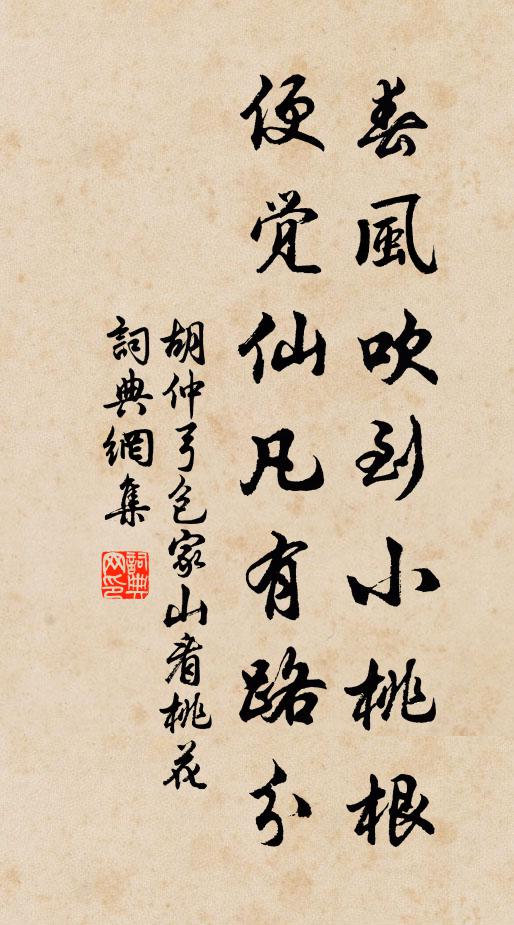 春風吹到小桃根
便覚仙凡有路分
胡仲弓包家山看桃花
詞典網集
詞典网印